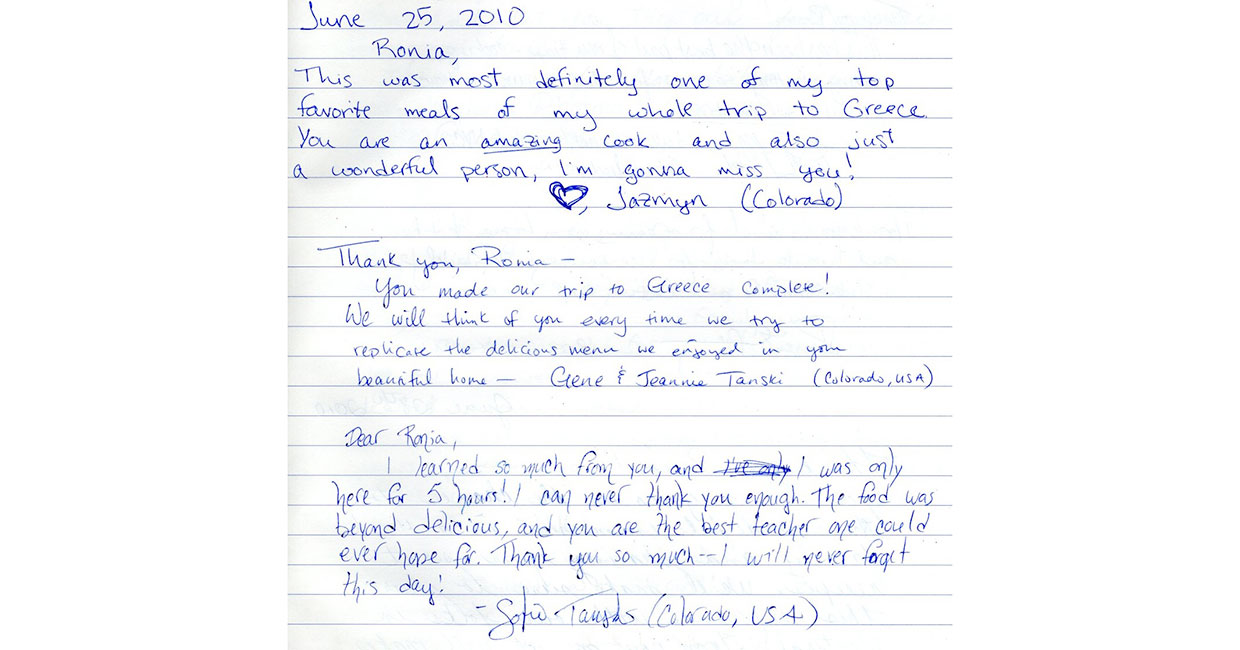 June 25, 2010
Ronia,
This was most definitely one of my top
favorite meals of my whole trip to Greece.
You are an amazing cook and also just
a wonderful person, I'm gonna miss you!
♡, Jazmyn (Colorado)
Thank you, Ronia —
You made our trip to Greece complete!
We will think of you every time we try to
replicate the delicious menu we enjoyed in your
beautiful home — Gene & Jeannie Tanski (Colorado, USA)
Dear Ronia,
I learned so much from you, and I've only I was only
here for 5 hours! I can never thank you enough. The food was
beyond delicious, and you are the best teacher one could
ever hope for. Thank you so much -- I will never forget
this day!
- (Colorado, USA)